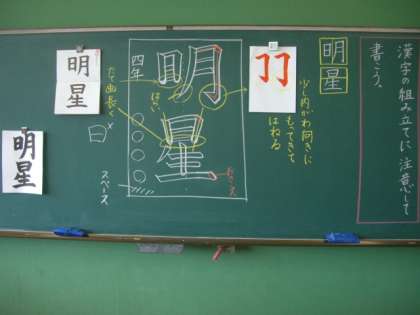 漢字の組み立てに、注意して
書こう。
明
星
少し内がわ向きに
もってきて
はねる
明
星
四年
たて画長く
スペース
明
星
明
星